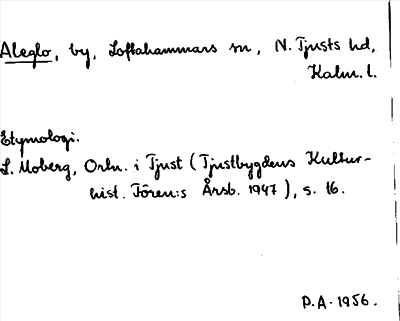 Aleglo, by, Loftahammars sn, N. Tjusts hd,
Kalm. l.
Etymologi.
L. Moberg, Ortn. i Tjust (Tjustbygdens Kultur-
hist. Fören:s Årsb. 1947), s. 16.
P.A. 1956.